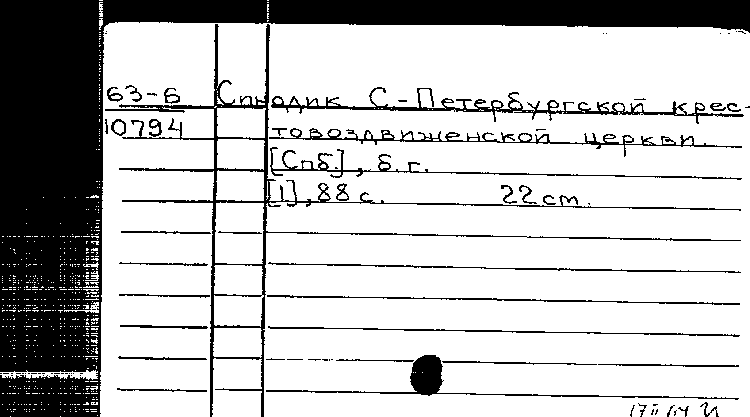 63-6 Синодик С.-Петербургской крес-
10794 товоздвиженской церкви.
[Спб.], б. г.
[1], 88 с. 22 cm.